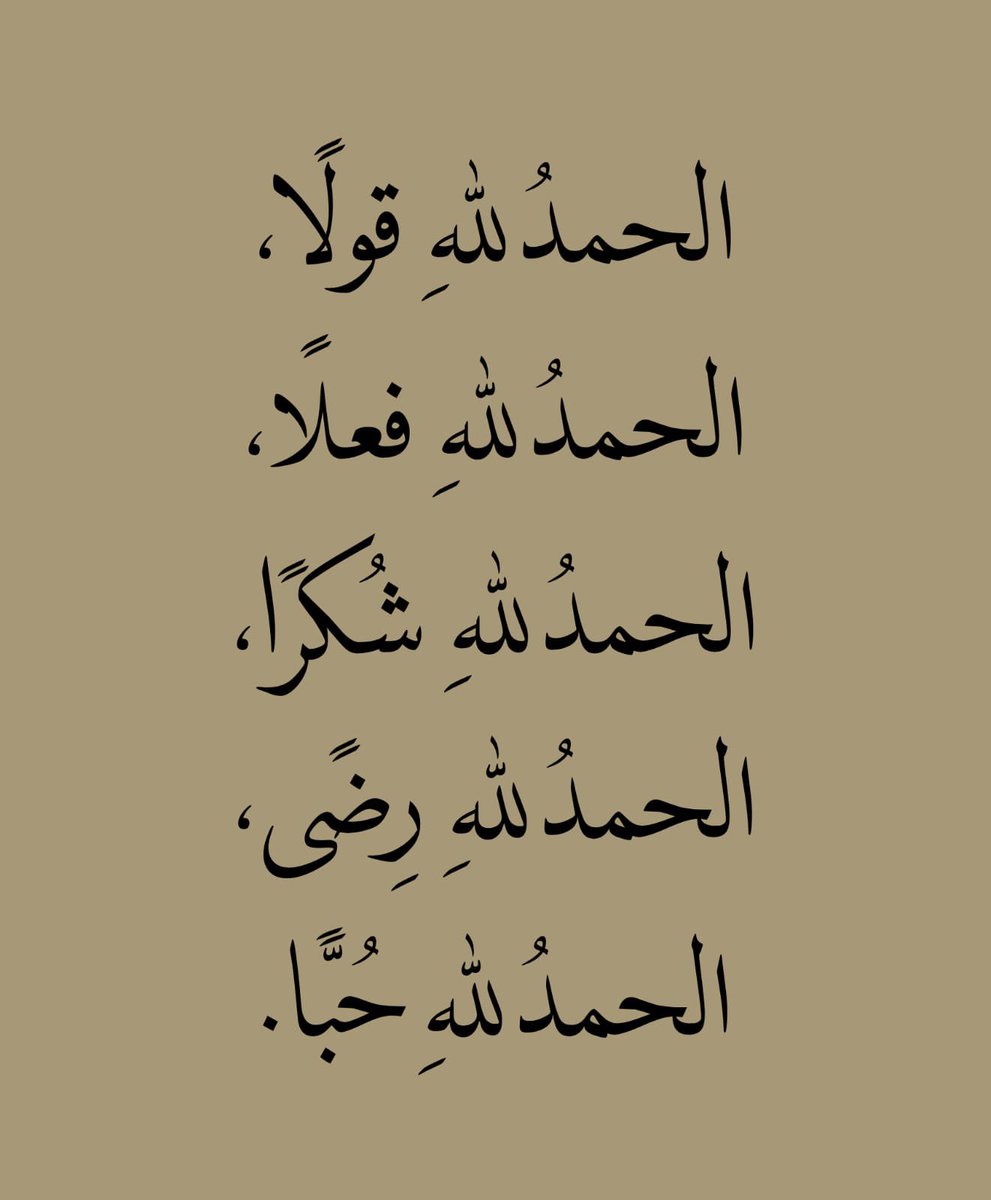 الحمدُ للهِ قولًا،
الحمدُ للهِ فعلًا،
الحمدُ للهِ شُكرًا،
الحمدُ للهِ رِضًى،
الحمدُ للهِ حُبًّا.